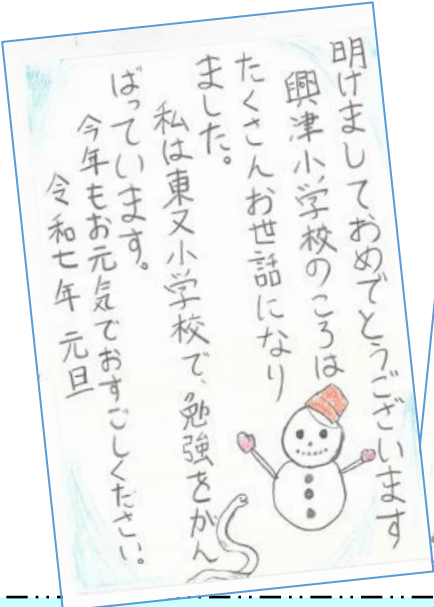 明けましておめでとうございます
興津小学校のころは
たくさんお世話になり
ました。
私は東又小学校で、勉強をがん
ばっています。
今年もお元気でおすごしください。
令和七年 元旦